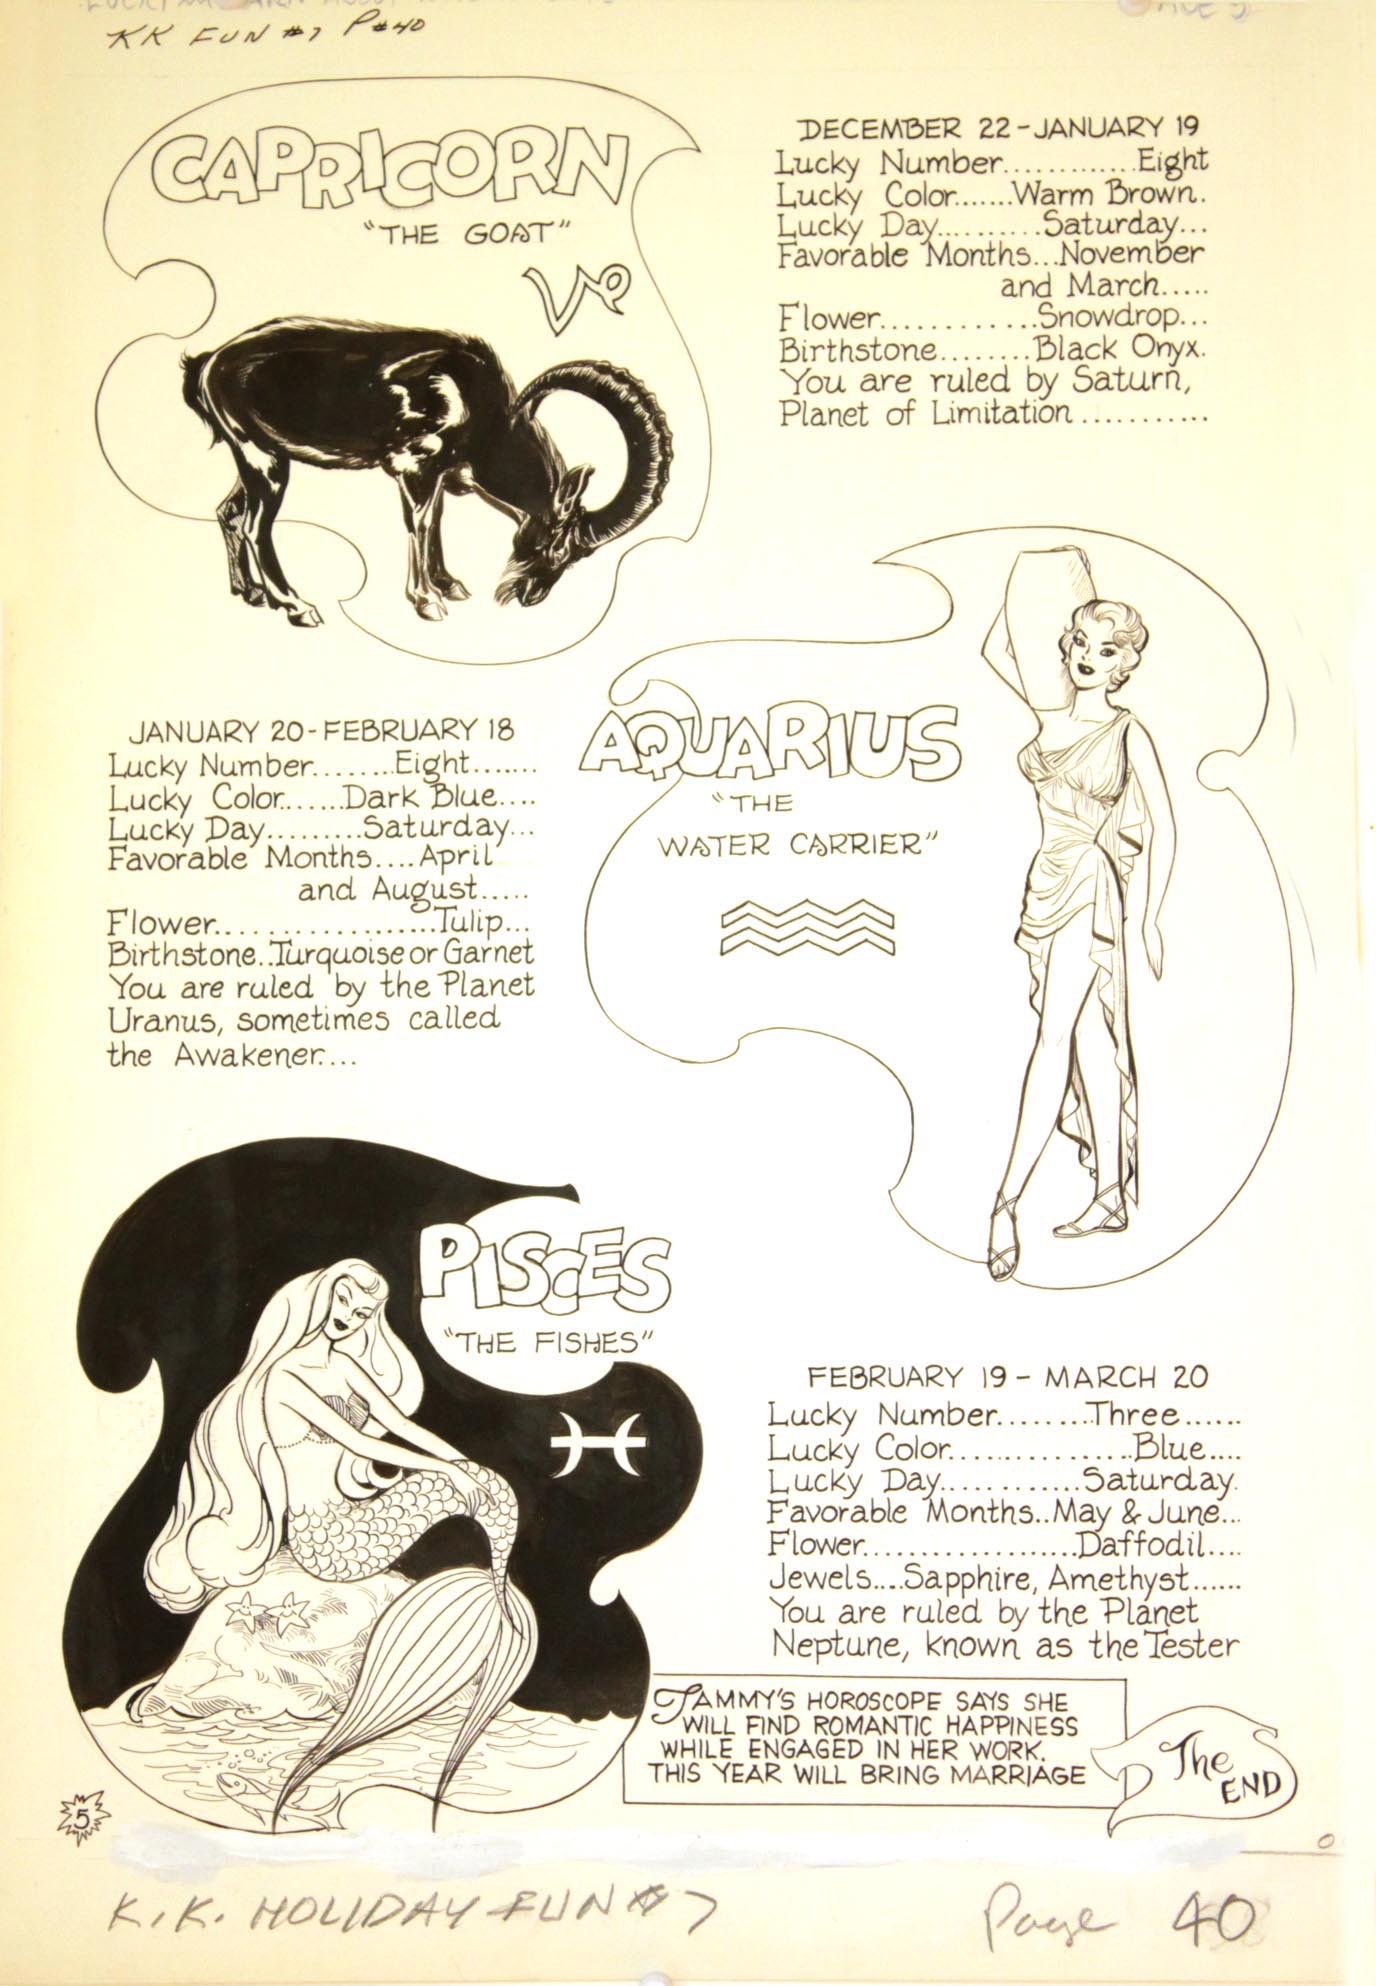 KK FUN #7 P#40
CAPRICORN
"THE GOAT"
DECEMBER 22-JANUARY 19
Lucky Number.............Eight
Lucky Color.......Warm Brown.
Lucky Day..........Saturday...
Favorable Months...November
and March.....
Flower............Snowdrop...
Birthstone........Black Onyx.
You are ruled by Saturn,
Planet of Limitation...........
JANUARY 20-FEBRUARY 18
Lucky Number........Eight.......
Lucky Color......Dark Blue....
Lucky Day.........Saturday...
Favorable Months....April
and August.....
Flower...................Tulip...
Birthstone..Turquoise or Garnet
You are ruled by the Planet
Uranus, sometimes called
the Awakener....
AQUARIUS
"THE
WATER CARRIER"
PISCES
"THE FISHES"
FEBRUARY 19 - MARCH 20
Lucky Number........Three......
Lucky Color................Blue....
Lucky Day............Saturday.
Favorable Months..May & June...
Flower...................Daffodil....
Jewels....Sapphire, Amethyst......
You are ruled by the Planet
Neptune, known as the Tester
TAMMY'S HOROSCOPE SAYS SHE
WILL FIND ROMANTIC HAPPINESS
WHILE ENGAGED IN HER WORK.
THIS YEAR WILL BRING MARRIAGE
The
END
5
K.K. HOLIDAY FUN #7
Page 40